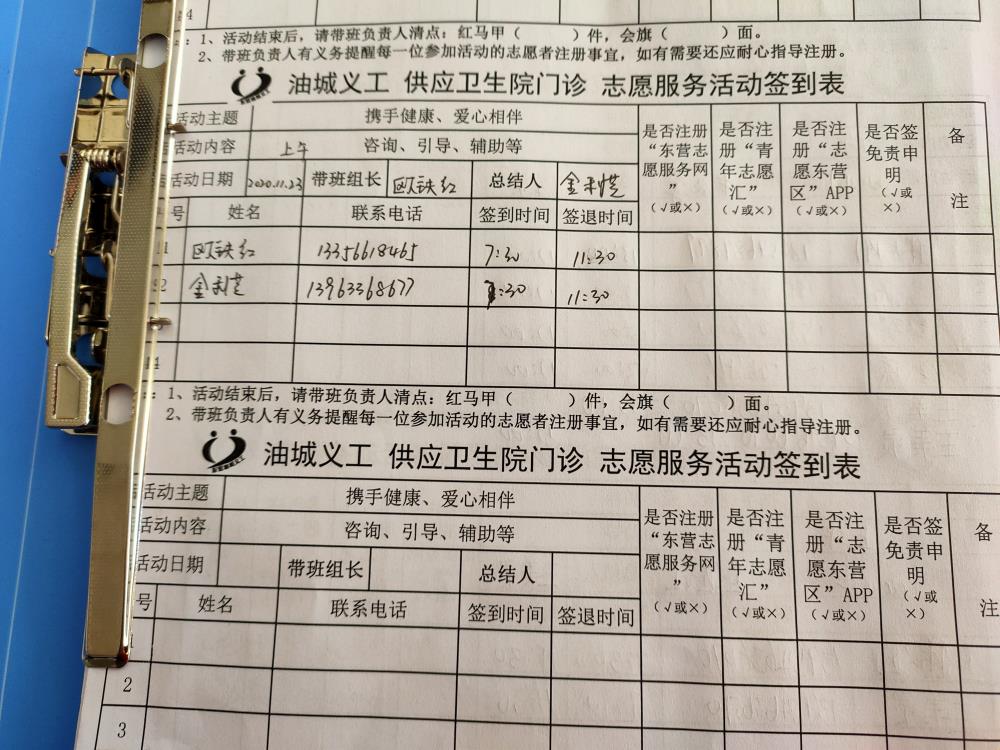 4
：1、活动结束后，请带班负责人清点：红马甲（ ）件，会旗（ ）面。
2、带班负责人有义务提醒每一位参加活动的志愿者注册事宜，如有需要还应耐心指导注册。
油城义工 供应卫生院门诊 志愿服务活动签到表
活动主题 携手健康、爱心相伴
活动内容 上午 咨询、引导、辅助等
活动日期 2020.11.23 带班组长 欧铁红 总结人
是否注册“东营志愿服务网”（√或×）
是否注册“青年志愿汇”（√或×）
是否注册“志愿东营区”APP（√或×）
是否签免责申明（√或×）
备注
号 姓名 联系电话 签到时间 签退时间
1 欧铁红 13356618465 7:30 11:30
2 13963368677 :30 11:30
4
：1、活动结束后，请带班负责人清点：红马甲（ ）件，会旗（ ）面。
2、带班负责人有义务提醒每一位参加活动的志愿者注册事宜，如有需要还应耐心指导注册。
油城义工 供应卫生院门诊 志愿服务活动签到表
活动主题 携手健康、爱心相伴
活动内容 咨询、引导、辅助等
活动日期 带班组长 总结人
是否注册“东营志愿服务网”（√或×）
是否注册“青年志愿汇”（√或×）
是否注册“志愿东营区”APP（√或×）
是否签免责申明（√或×）
备注
号 姓名 联系电话 签到时间 签退时间
2
3